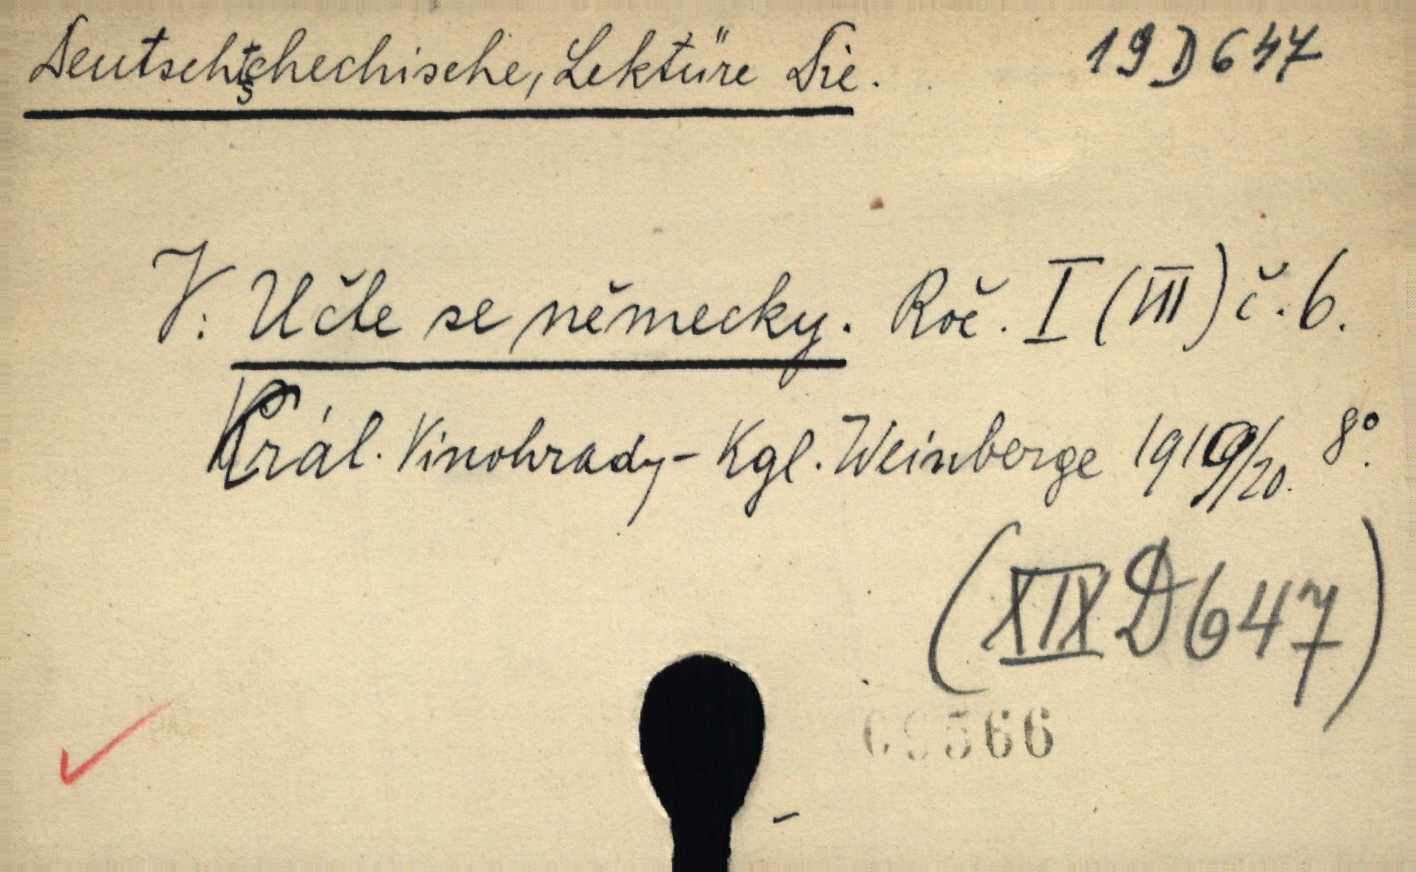 Deutschtschechische, Lektüre Die. 19 D 647
V: Učte se německy. Roč. I (III) č. 6.
Král. Vinohrady - Kgl. Weinberge 1919/20. 8°.
(XIX D 647)
09566